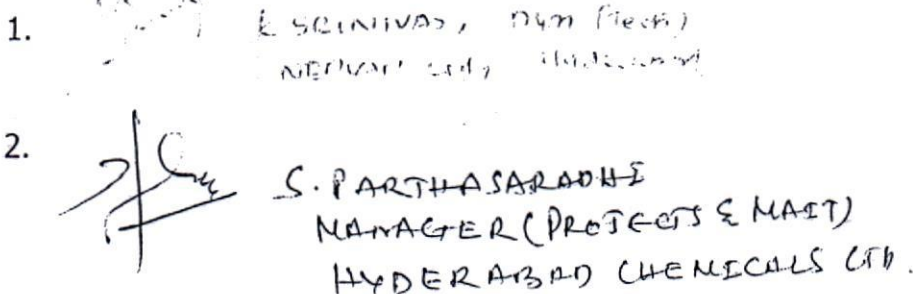 1. K SRINIVAS, Dym (Tech)
Ltd,
2. S. PARTHASARADHI
MANAGER (PROJECTS & MAIT)
HYDERABAD CHEMICALS LTD.